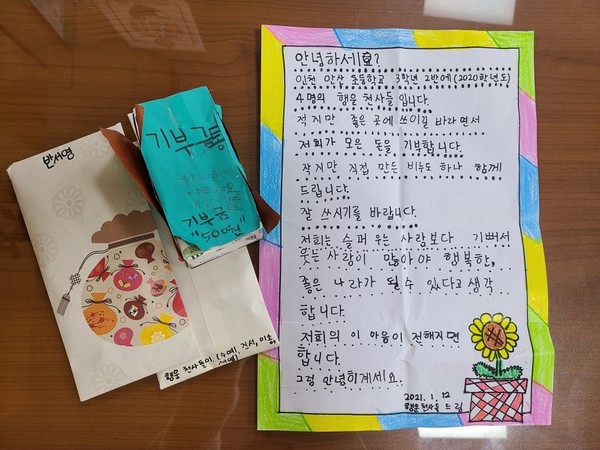 반서영
기부금통
기부금통
"500원"
행운 천사들이. (수예, 건서, 이송,
안녕하세요?
인천 안산 초등학교 3학년 2반에 (2020학년도)
4명의 행운 천사들 입니다.
적지만 좋은 곳에 쓰이길 바라면서
저희가 모은 돈을 기부합니다.
작지만 직접 만든 비누도 하나 함께
드립니다.
잘 쓰시기를 바랍니다.
저희는 슬퍼 우는 사람보다 기뻐서
웃는 사람이 많아야 행복한,
좋은 나라가 될 수 있다고 생각
합니다.
저희의 이 마음이 전해지면
합니다.
그럼 안녕히게세요.
2021. 1. 12
행운 천사들 드림